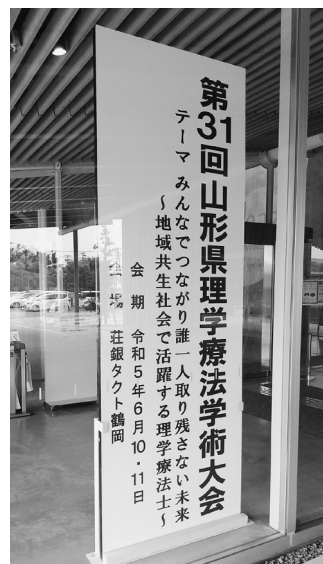 第31回山形県理学療法学術大会
テーマ みんなでつながり誰一人取り残さない未来
~地域共生社会で活躍する理学療法士~
会 期 令和5年6月10・11日
会 場 荘銀タクト鶴岡